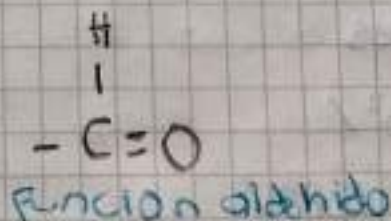 H
|
- C = O
Función aldehido